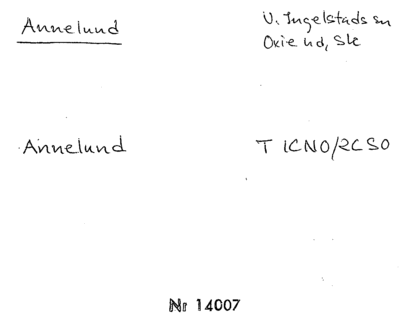 Annelund
V. Ingelstads sn
Oxie hd, Sk
Annelund
T 1CNO/2CSO
Nr 14007